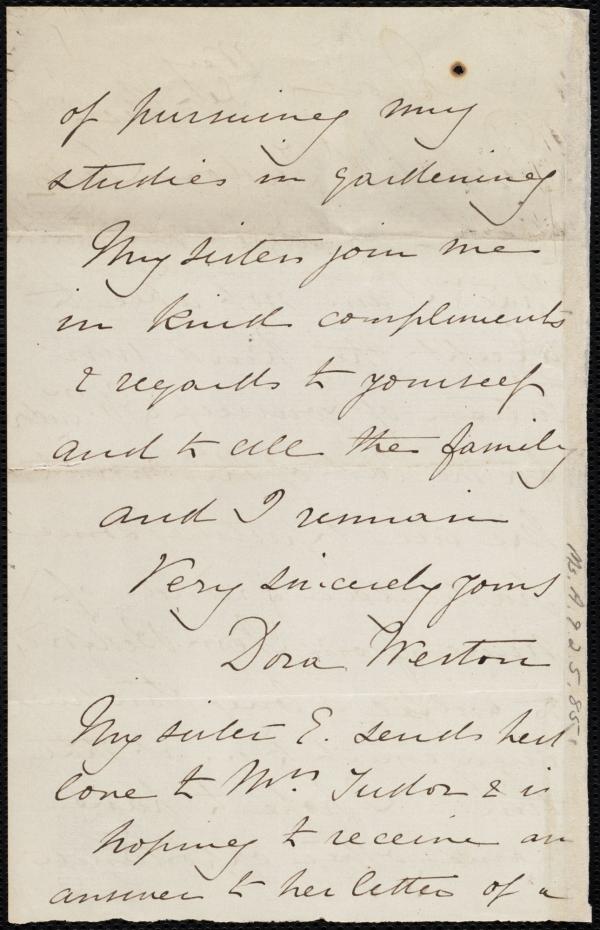 of pursuing my
studies in gardening
My sisters join me
in kind compliments
& regards to yourself
and to all the family
and I remain
Very sincerely yours
Dora Weston
My sister E. sends her
love to Mrs. Tudor & is
hoping to receive an
answer to her letter of a
Ms. A.9.2 5.85